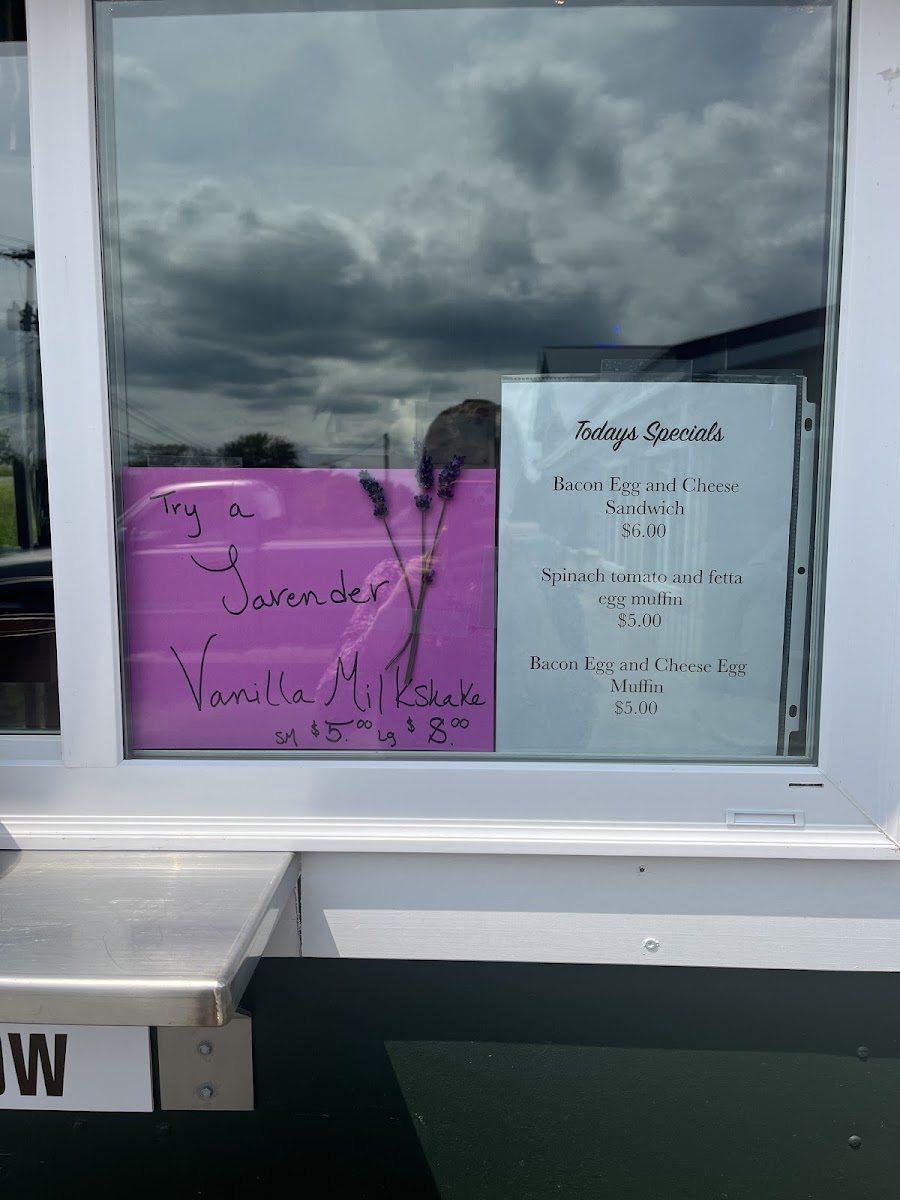 Try a
Lavender
Vanilla Milkshake
SM $5.00 Lg $8.00
Todays Specials
Bacon Egg and Cheese
Sandwich
$6.00
Spinach tomato and fetta
egg muffin
$5.00
Bacon Egg and Cheese Egg
Muffin
$5.00
OW